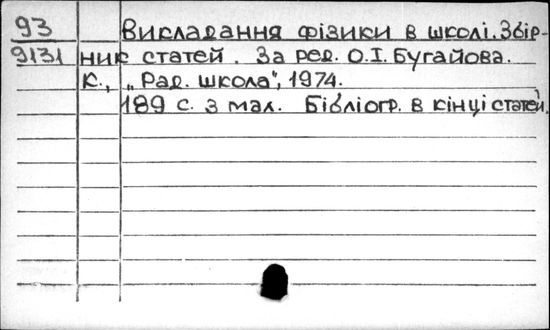 93 Викладання фізики в школі. Збір-
9131 ник статей. За ред. О.І. Бугайова.
К., „Рад. школа", 1974.
189 с. з мал. Бібліогр. в кінці статей.